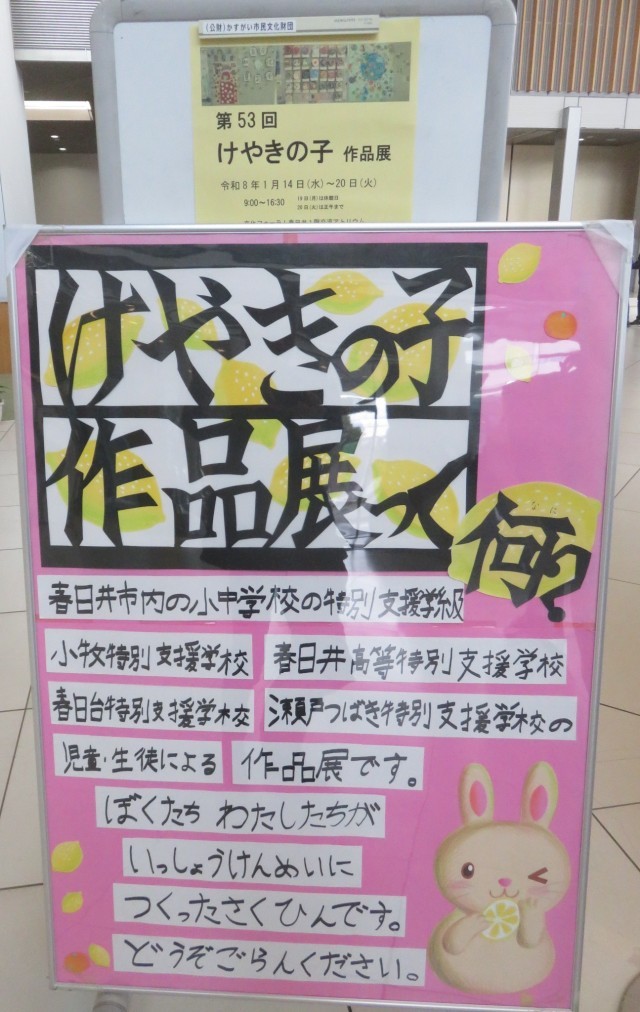 (公財)かすがい市民文化財団
第53回
けやきの子 作品展
令和8年1月14日(水)~20日(火)
9:00~16:30
19日(月)は休館日
20日(火)は正午まで
けやきの子
作品展って
なに
何?
春日井市内の小中学校の特別支援学級
小牧特別支援学校
春日井高等特別支援学校
春日台特別支援学校
瀬戸つばき特別支援学校の
児童・生徒による
作品展です。
ぼくたち わたしたちが
いっしょうけんめいに
つくったさくひんです。
どうぞごらんください。